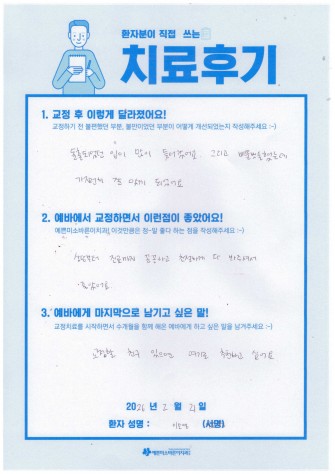 환자분이 직접 쓰는
치료후기
1. 교정 후 이렇게 달라졌어요!
교정하기 전 불편했던 부분, 불만이었던 부분이 어떻게 개선되었는지 작성해주세요 :-)
돌출되었던 입이 많이 들어갔어요. 그리고
가지런히 되었어요
2. 예바에서 교정하면서 이런점이 좋았어요!
예쁜미소바른이치과, 이것만큼은 참~말 좋다 하는 점을 작성해주세요 :-)
진료까지 꼼꼼하고 친절하게 다 봐주셔서
좋았어요
3. 예바에게 마지막으로 남기고 싶은 말!
교정치료를 시작하면서 수개월을 함께 해온 예바에게 하고 싶은 말을 남겨주세요 :-)
교정할 친구 있으면 여기로 추천하고 싶어요
2026 년 2 월 21 일
환자 성명 : (서명)
예쁜미소바른이치과